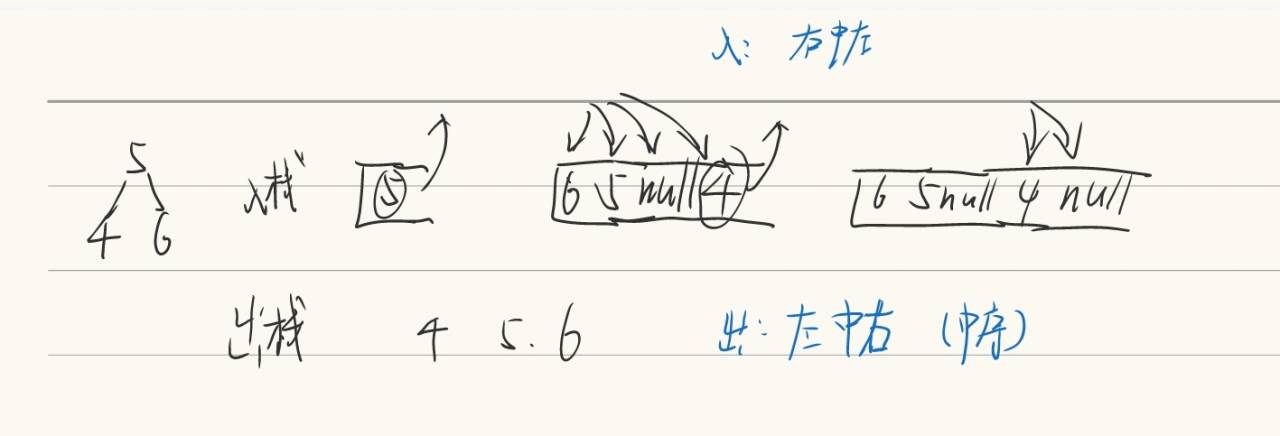 入: 右中左
5
4 6
入栈 5 6 5 null 4 6 5 null 4 null
出栈 4 5. 6 出: 左中右 (中序)